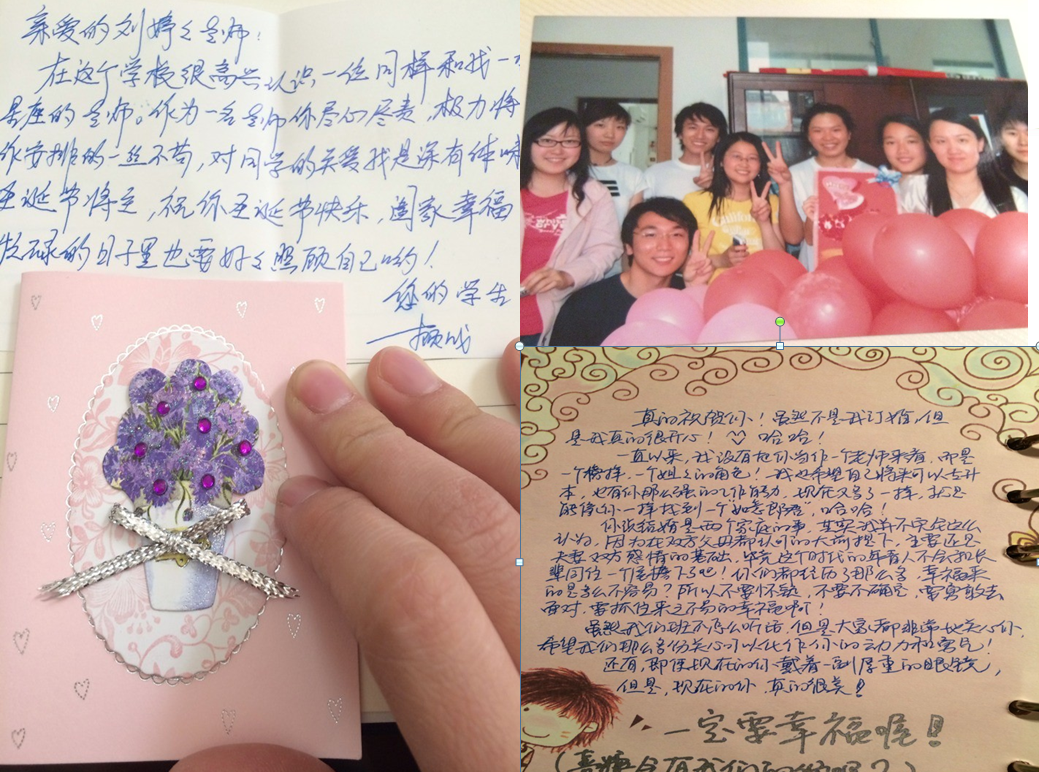 亲爱的刘婷々老师:
在这个学校很高兴认识一位同样和我一
星座的老师。作为一名老师你尽心尽责,极力将
作安排的一丝不苟,对同学的关爱我是深有体味
圣诞节将至,祝你圣诞节快乐,阖家幸福
忙碌的日子里也要好々照顾自己哟!
您的学生
真的祝贺你!虽然不是我订婚,但
是我真的很开心!哈哈!
一直以来,我没有把你当作一个老师来看,而是
一个榜样,一个姐姐的角色!我也希望自己将来可以专升
本,也有你那么强的工作能力,现在又多了一样,就是
能像你一样找到一个"如意郎君",哈哈!
你说结婚是两个家庭的事,其实我并不完全这么
认为,因为在双方父母都认可的大前提下,主要还是
夫妻双方感情的基础,毕竟这个时代的年青人不会和长
辈同住一个屋檐下了吧!你们都经历了那么多,幸福来
的是多么不容易?所以不要怀疑,不要不确定,要勇敢去
面对,要抓住来之不易的幸福啊!
虽然我们班不怎么听话,但是大家都非常地关心你,
希望我们那么多份关心可以化作你的动力和勇气!
还有,即使现在的你戴着一副厚重的眼镜,
但是,现在的你,真的很美!
一定要幸福喔!
(喜糖会有我们的份吗?)